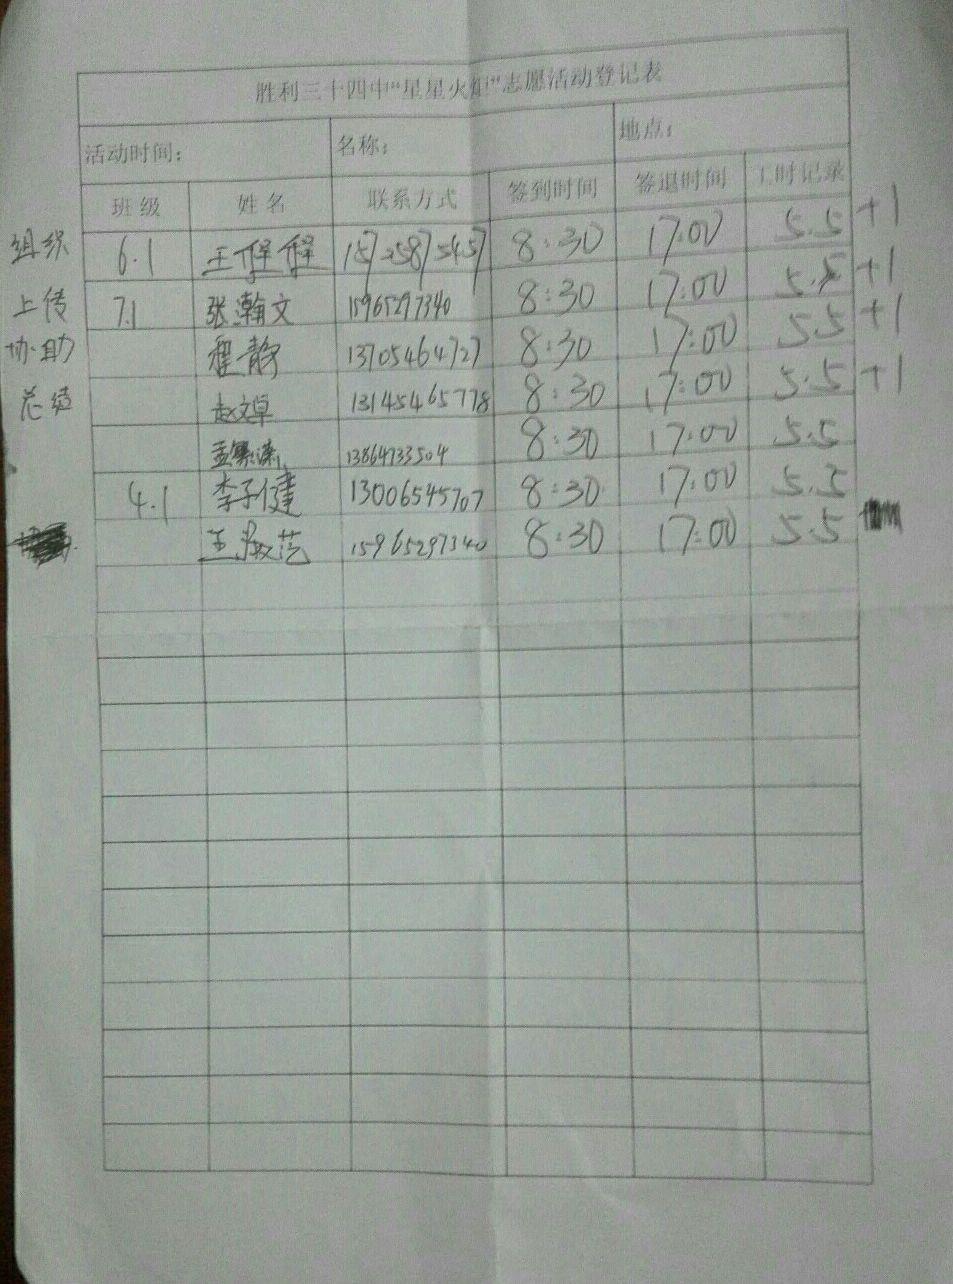 胜利三十四中“星星火炬”志愿活动登记表
活动时间: 名称: 地点:
班级 姓名 联系方式 签到时间 签退时间 工时记录
组织 6.1 王 8:30 17:00 5.5 +1
上传 7.1 张瀚文 15965297340 8:30 17:00 5.5 +1
协助 程静 13705464727 8:30 17:00 5.5 +1
总结 赵文卓 13145465778 8:30 17:00 5.5 +1
孟 13864733504 8:30 17:00 5.5
4.1 李子健 13006545707 8:30 17:00 5.5
王淑范 15965297340 8:30 17:00 5.5